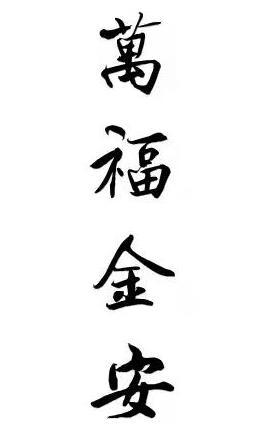 萬福金安